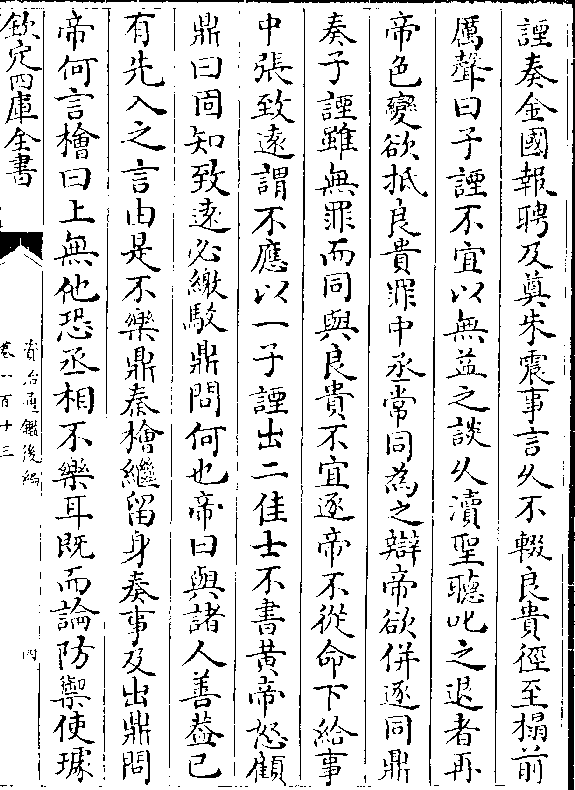 諲奏金國報聘及奠朱震事言乆不輟良貴徑至榻前
厲聲曰子諲不宜以無益之談乆瀆聖聽叱之退者再
帝色變欲抵良貴罪中丞常同為之辯帝欲併逐同鼎
奏子諲雖無罪而同與良貴不宜逐帝不從命下給事
中張致遠謂不應以一子諲出二佳士不書黄帝怒顧
鼎曰固知致遠必繳駮鼎問何也帝曰與諸人善葢已
有先入之言由是不樂鼎秦檜繼留身奏事及出鼎問
帝何言檜曰上無他恐丞相不樂耳既而論防禦使璩
欽定四庫全書
資治通鑑後編
卷一百十三
四